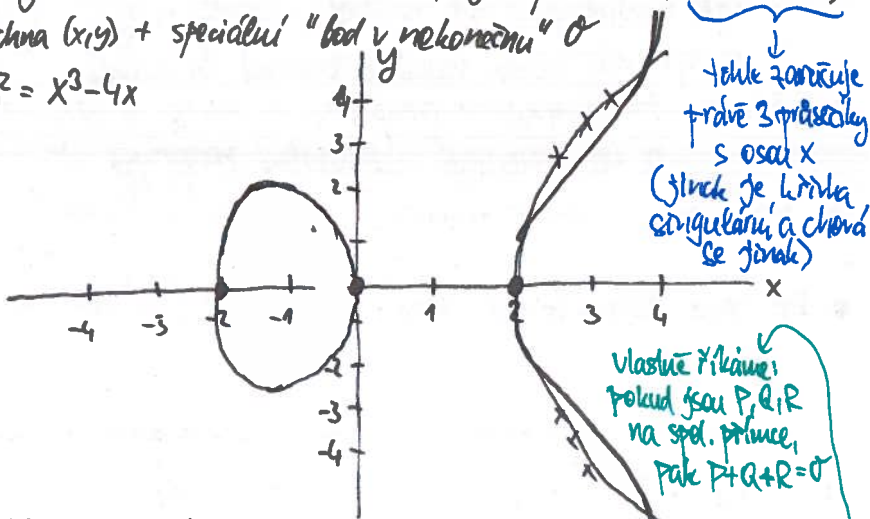 chna (x,y) + speciální "bod v nekonečnu" O
² = x³-4x
y
4
3
2
-4 -3 -2 -1 1 2 3 4 x
-2
-3
-4
tohle zaručuje
právě 3 průsečíky
s osou x
(jinak je křivka
singulární a chová
se jinak)
vlastně říkáme:
pokud jsou P,Q,R
na spol. přímce,
pak P+Q+R=O